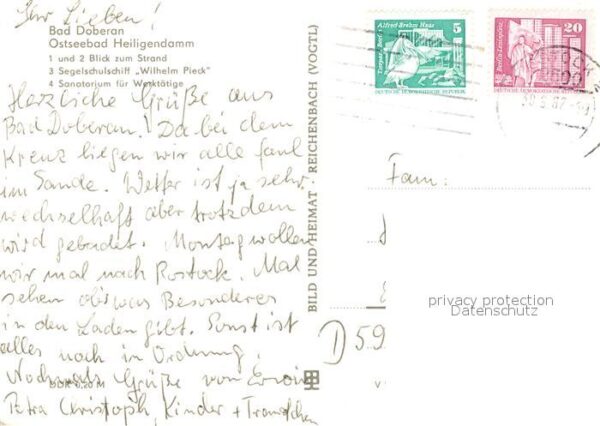 Ihr Lieben!
Bad Doberan
Ostseebad Heiligendamm
1 und 2 Blick zum Strand
3 Segelschulschiff „Wilhelm Pieck"
4 Sanatorium für Werktätige
Herzliche Grüße aus
Bad Doberan! Da bei dem
Kreuz liegen wir alle faul
im Sande. Wetter ist ja sehr
wechselhaft aber trotzdem
wird gebadet. Montag wollen
wir mal nach Rostock. Mal
sehen ob's was Besonderes
in den Laden gibt. Sonst ist
alles noch in Ordnung.
Nochmals Grüße von
Petra Christoph, Kinder +
DDR 0,20 M
BILD UND HEIMAT REICHENBACH (VOGTL)
Alfred-Brehm-Haus
5
DEUTSCHE DEMOKRATISCHE REPUBLIK
Berlin-Leninplatz
20
DEUTSCHE DEMOKRATISCHE REPUBLIK
Fam.
D 59
V
privacy protection
Datenschutz